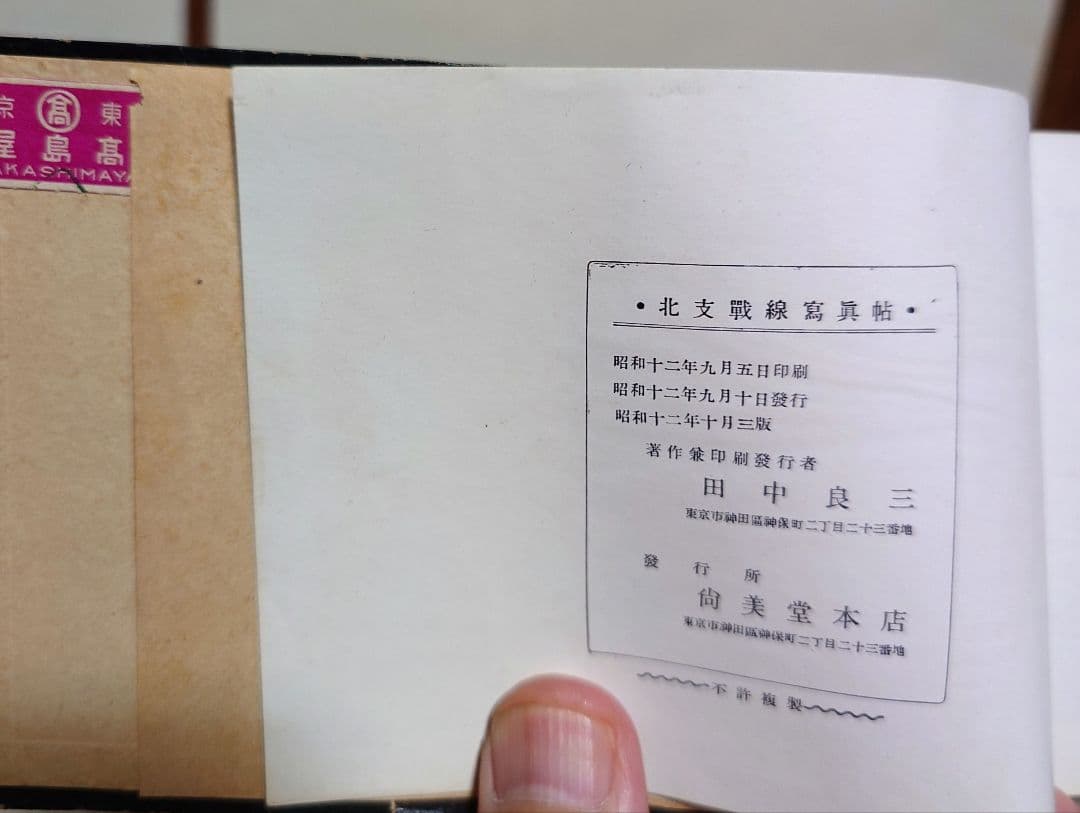 京 髙 東
屋島髙
AKASHIMAYA
•北支戰線寫眞帖•
昭和十二年九月五日印刷
昭和十二年九月十日發行
昭和十二年十月三版
著作兼印刷發行者
田中良三
東京市神田區神保町二丁目二十三番地
發行所
尙美堂本店
東京市神田區神保町二丁目二十三番地
不許複製